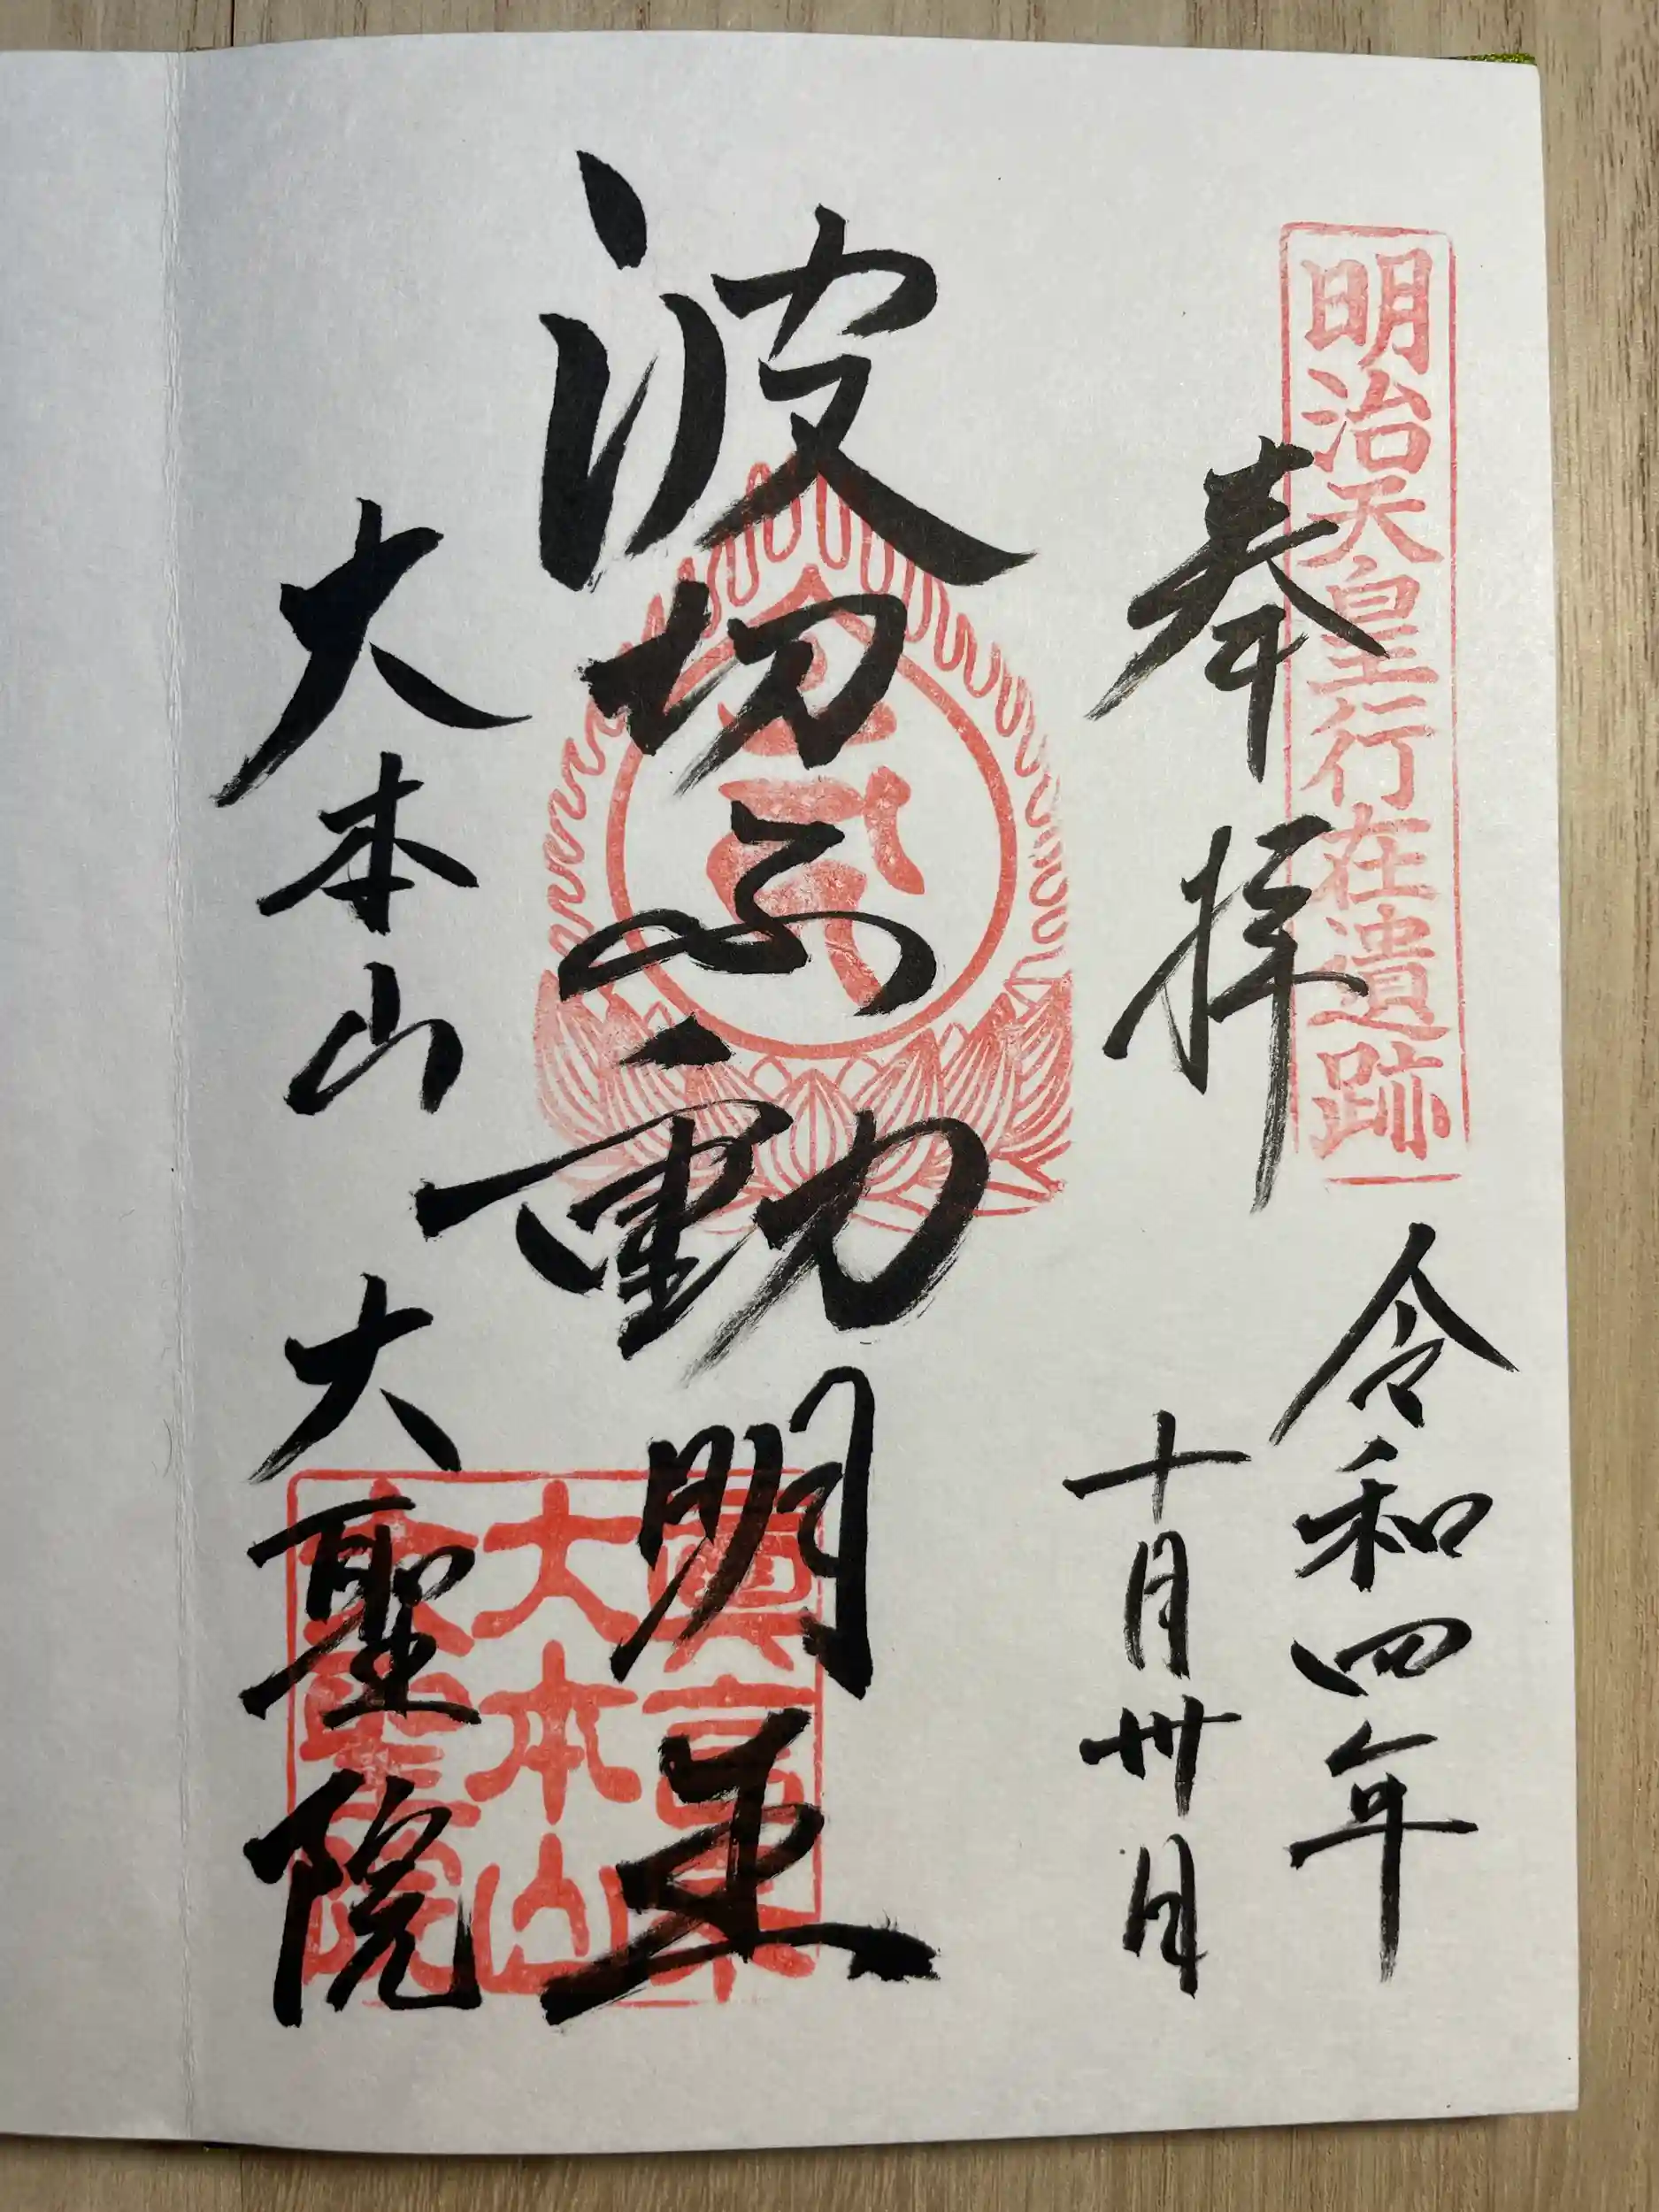 明治天皇行在遺跡
奉拝
令和四年
十月卅日
波切不動明王
大本山 大聖院
真言宗
大本山
大聖院